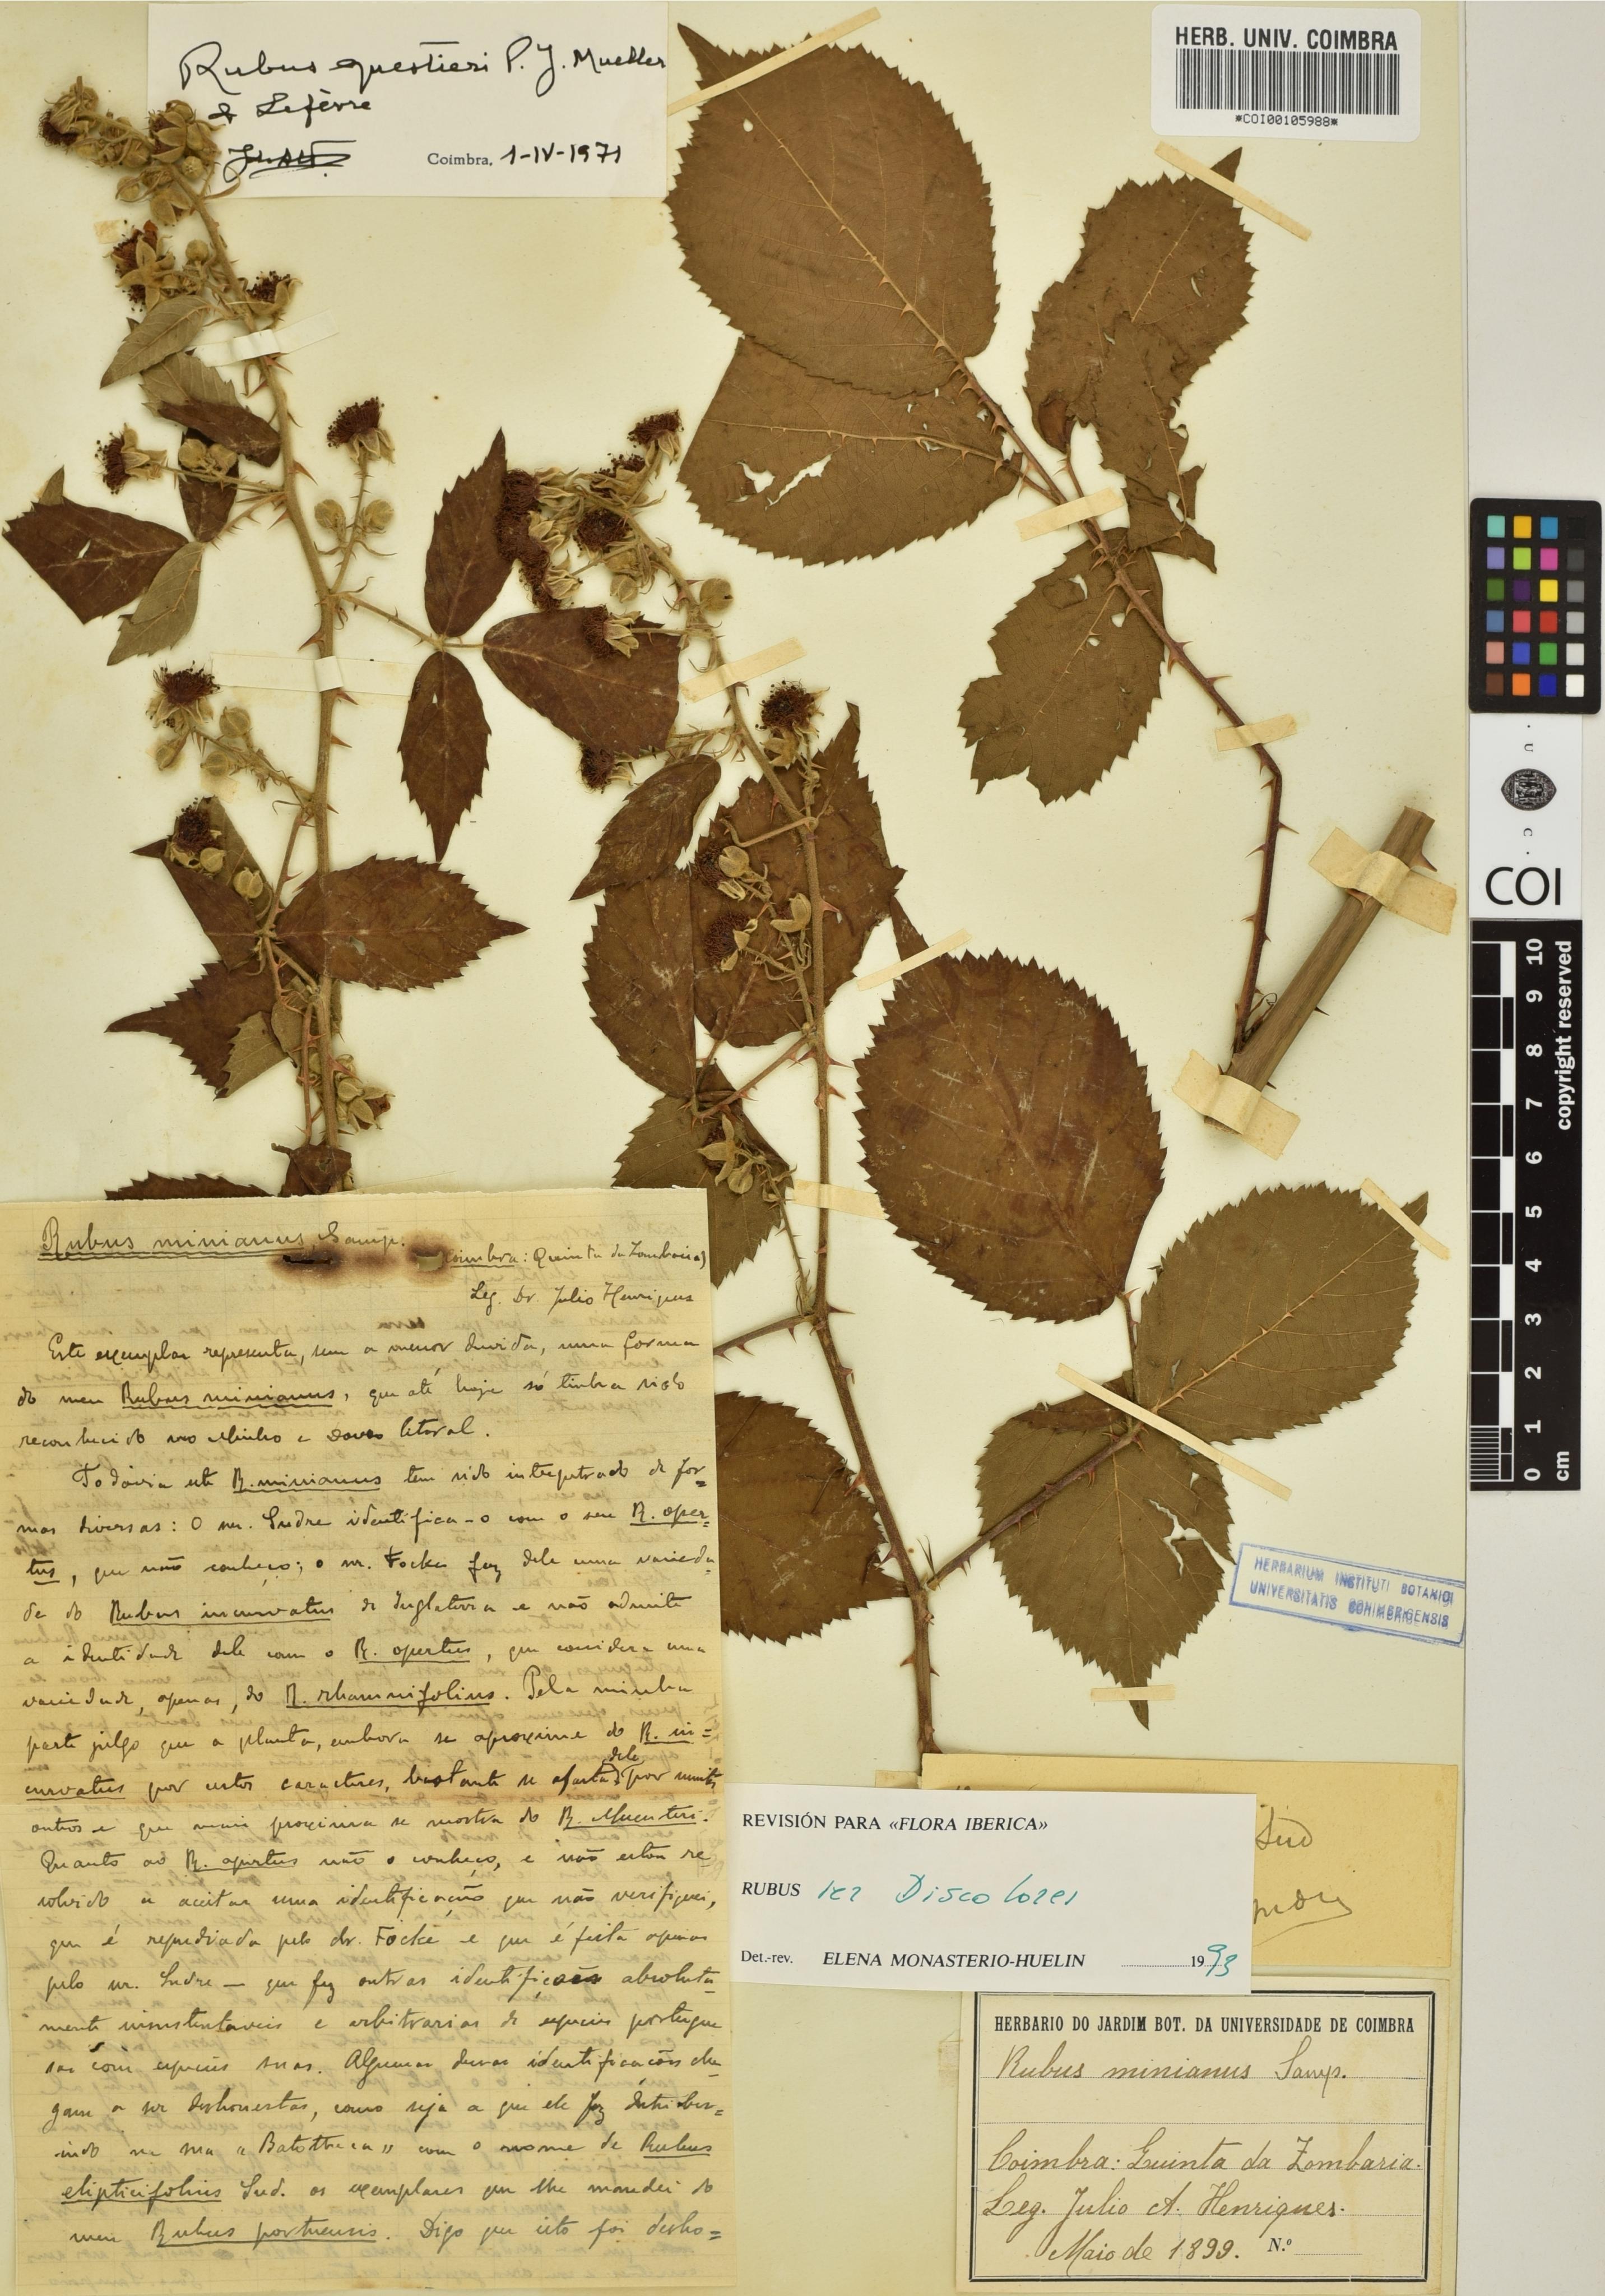 Rubus questieri P. J. Mueller
& Lefèvre
Coimbra, 1-IV-1971
HERB. UNIV. COIMBRA
*COI00105988*
COI
10 9 8 7 6 5 4 3 2 1 0
cm
copyright reserved
Rubus minianus, Samp.
Coimbra: Quinta da Zombaria)
Leg. Dr. Julio Henriques
Este exemplar representa, sem a menor duvida, uma forma
do meu Rubus minianus, que até hoje só tinha sido
reconhecido no Minho e Douro litoral.
Todavia este R. minianus tem sido interpretado de for=
mas diversas: O sr. Sudre identifica-o com o seu R. oper=
tus, que não conheço; o sr. Focke faz dele uma varieda-
de do Rubus incurvatus de Inglaterra e não admite
a identidade dele com o R. opertus, que considera uma
variedade, apenas, do R. rhamnifolius. Pela minha
parte julgo que a planta, embora se aproxime do R. in=
curvatus por certos caracteres, bastante se afasta dele por muitos
outros e que mais proxima se mostra do R. Muenteri.
Quanto ao R. opertus não o conheço, e não estou re
solvido a aceitar uma identificação que não verifiquei,
que é repudiada pelo dr. Focke e que é feita apenas
pelo sr. Sudre — que fez outras identificações absoluta-
mente insustentaveis e arbitrarias de especies portugue
sas com especies suas. Algumas dessas identificações che-
gam a ser deshonestas, como seja a que ele fez distribu=
indo na sua "Batotheca" com o nome de Rubus
elipticifolius Sud. os exemplares que lhe mandei do
meu Rubus portuensis. Digo que isto foi desho=
HERBARIUM INSTITUTI BOTANICI
UNIVERSITATIS CONIMBRIGENSIS
Sud
REVISIÓN PARA «FLORA IBERICA»
RUBUS ser Discolores
Det.-rev. ELENA MONASTERIO-HUELIN 1993
HERBARIO DO JARDIM BOT. DA UNIVERSIDADE DE COIMBRA
Rubus minianus Samp.
Coimbra: Quinta da Zombaria.
Leg. Julio A. Henriques.
Maio de 1899. N.º